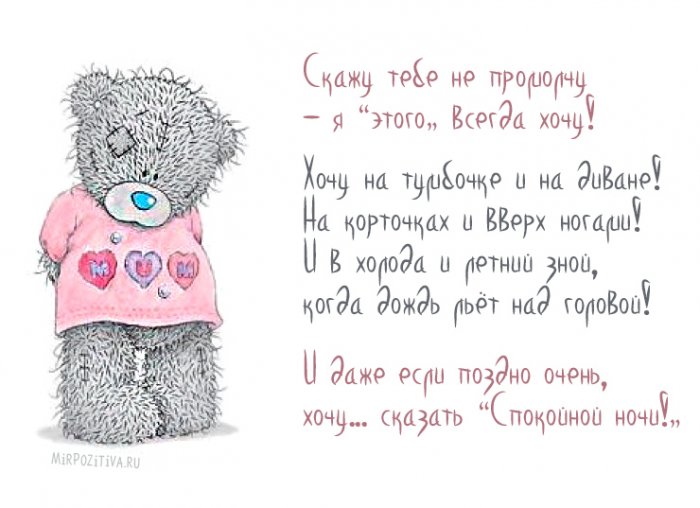 Скажу тебе не промолчу
– я “этого„ Всегда хочу!
Хочу на тумбочке и на диване!
На корточках и вверх ногами!
И в холода и летний зной,
когда дождь льёт над головой!
И даже если поздно очень,
хочу... сказать “Спокойной ночи!„
MUM
MiRPOZiTiVA.RU